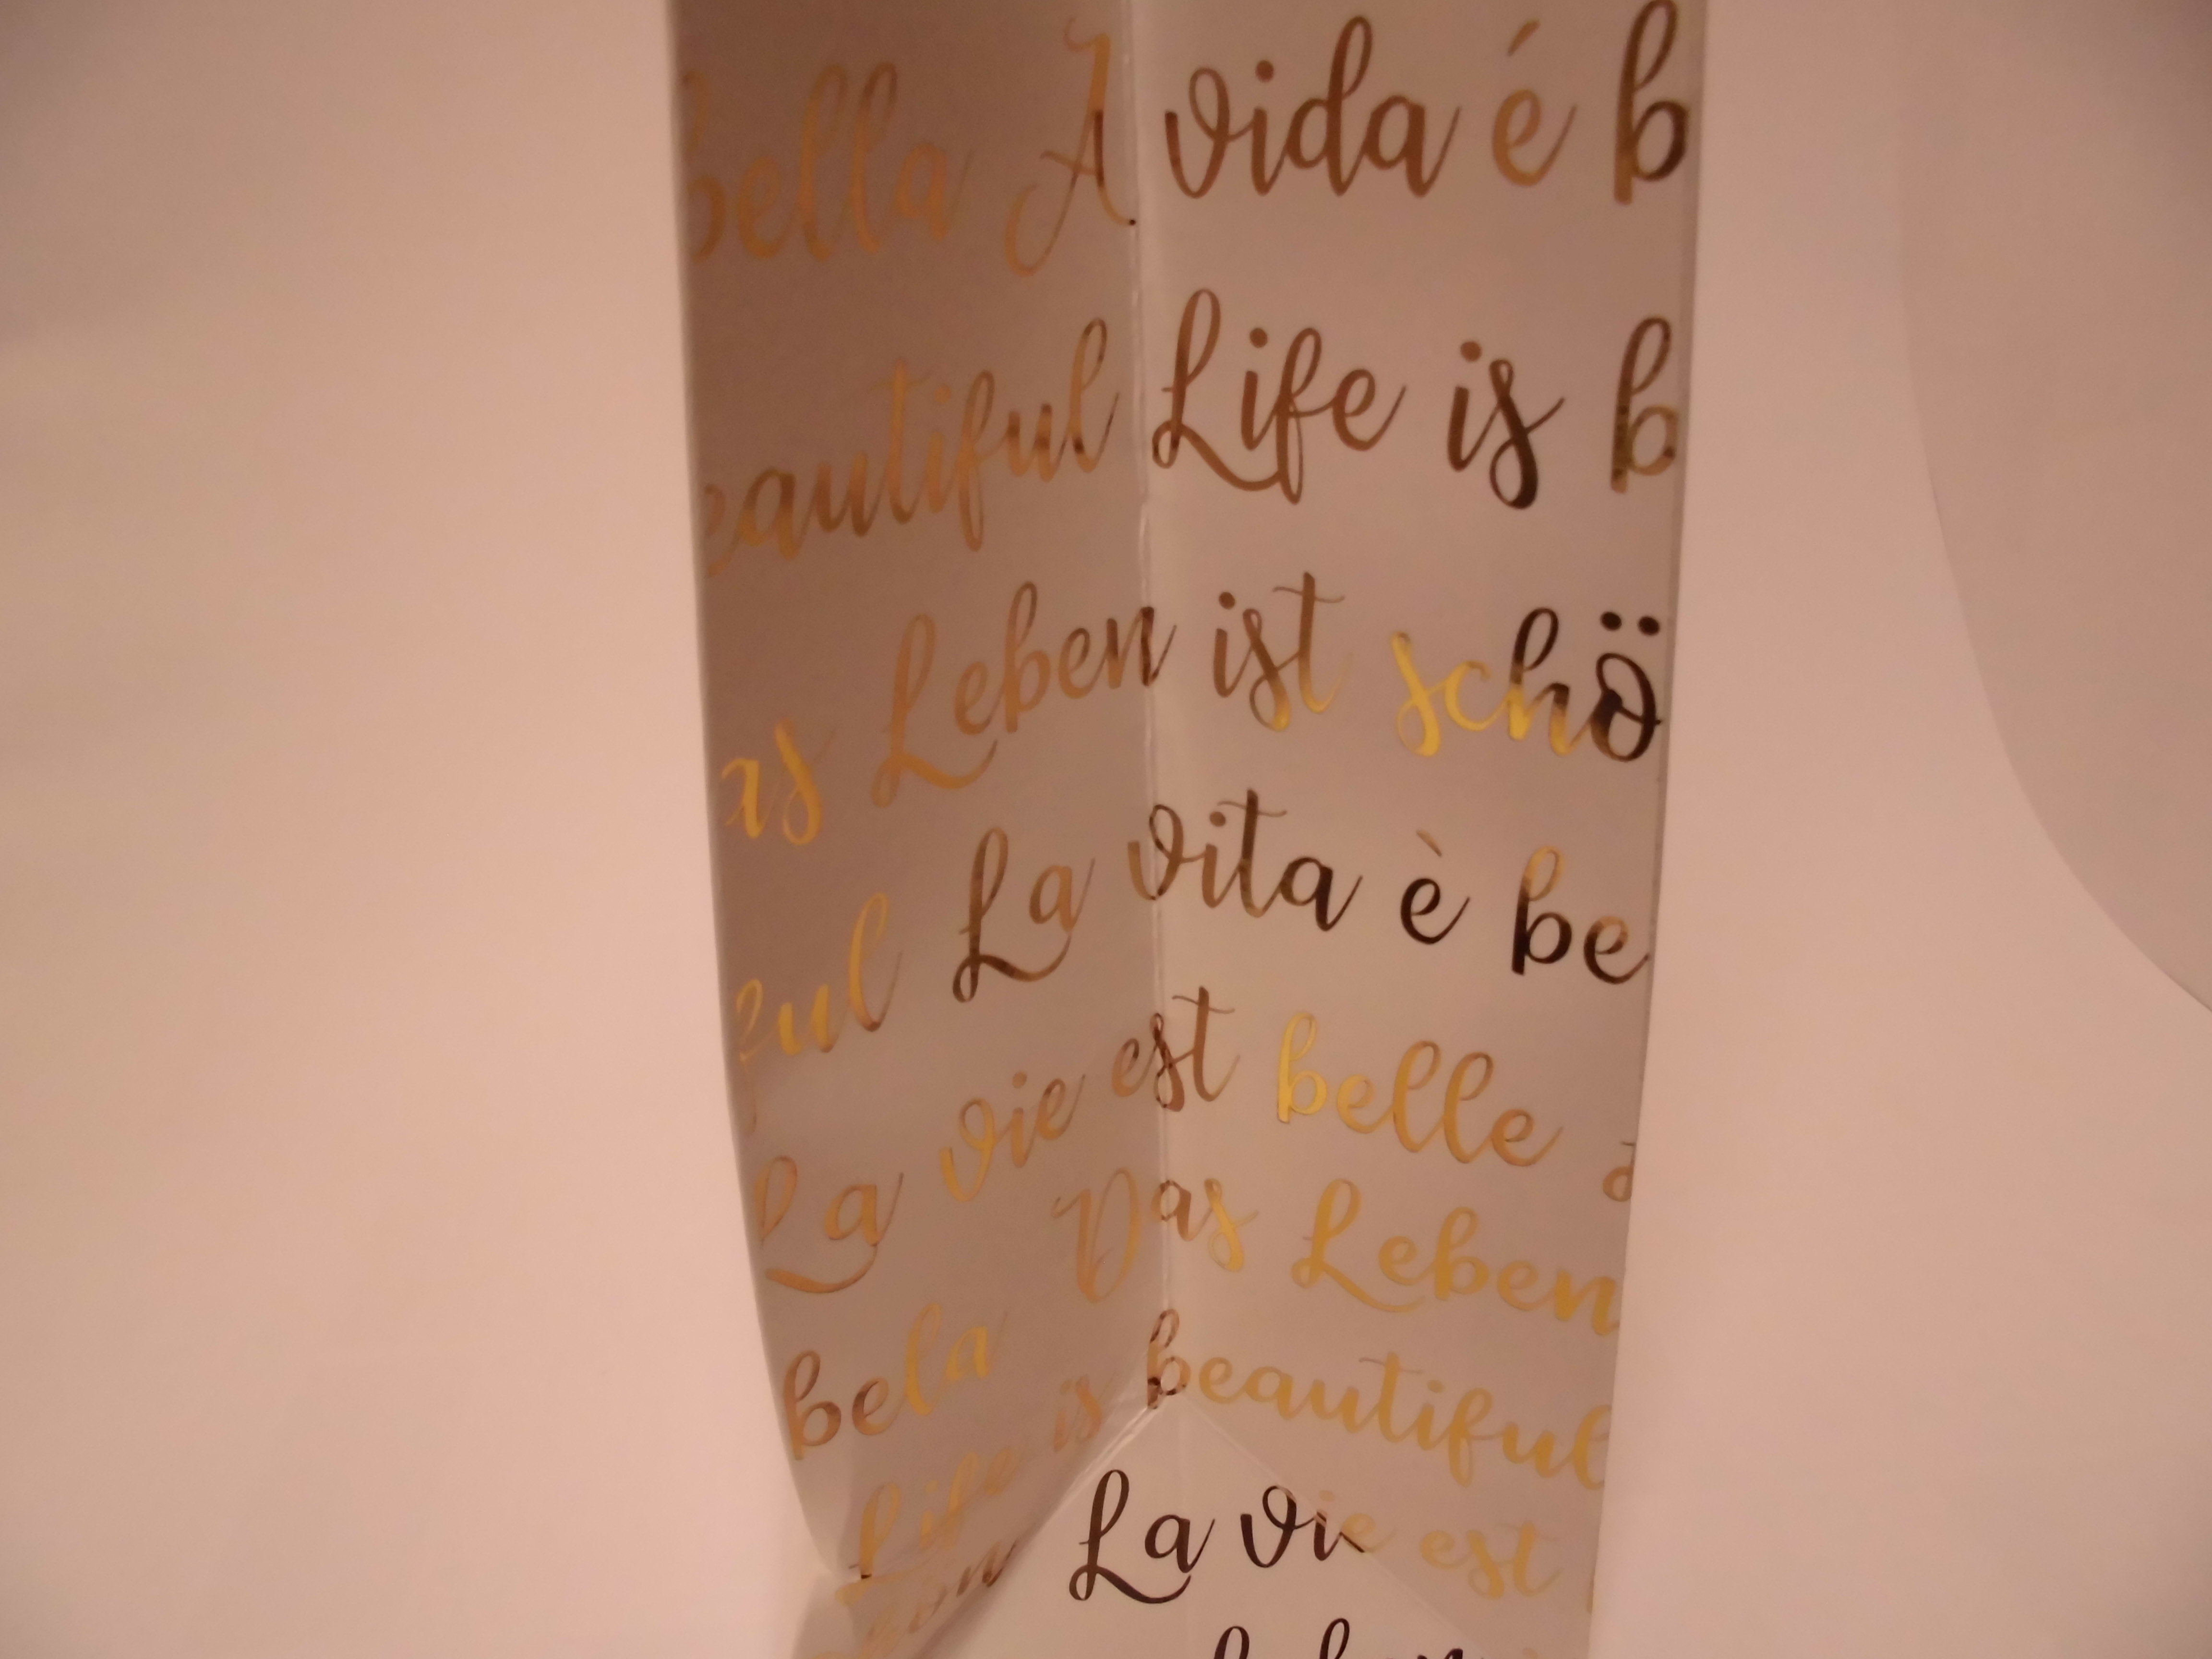 bella A vida é b
eautiful Life is b
as Leben ist schö
ful La vita è be
La vie est belle
Das Leben
bela
Life is beautiful
La vie est